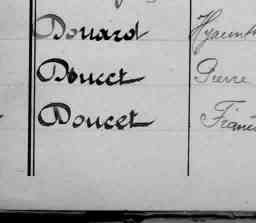 Douard Hyacinth
Doucet Pierre
Doucet Franc